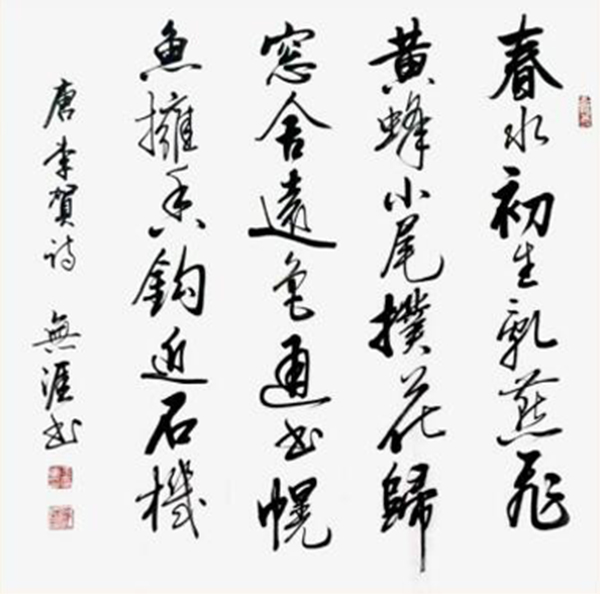 春水初生乳燕飛
黄蜂小尾撲花歸
窓含遠色通書幌
魚擁香鈎近石機
唐李賀詩 無涯書